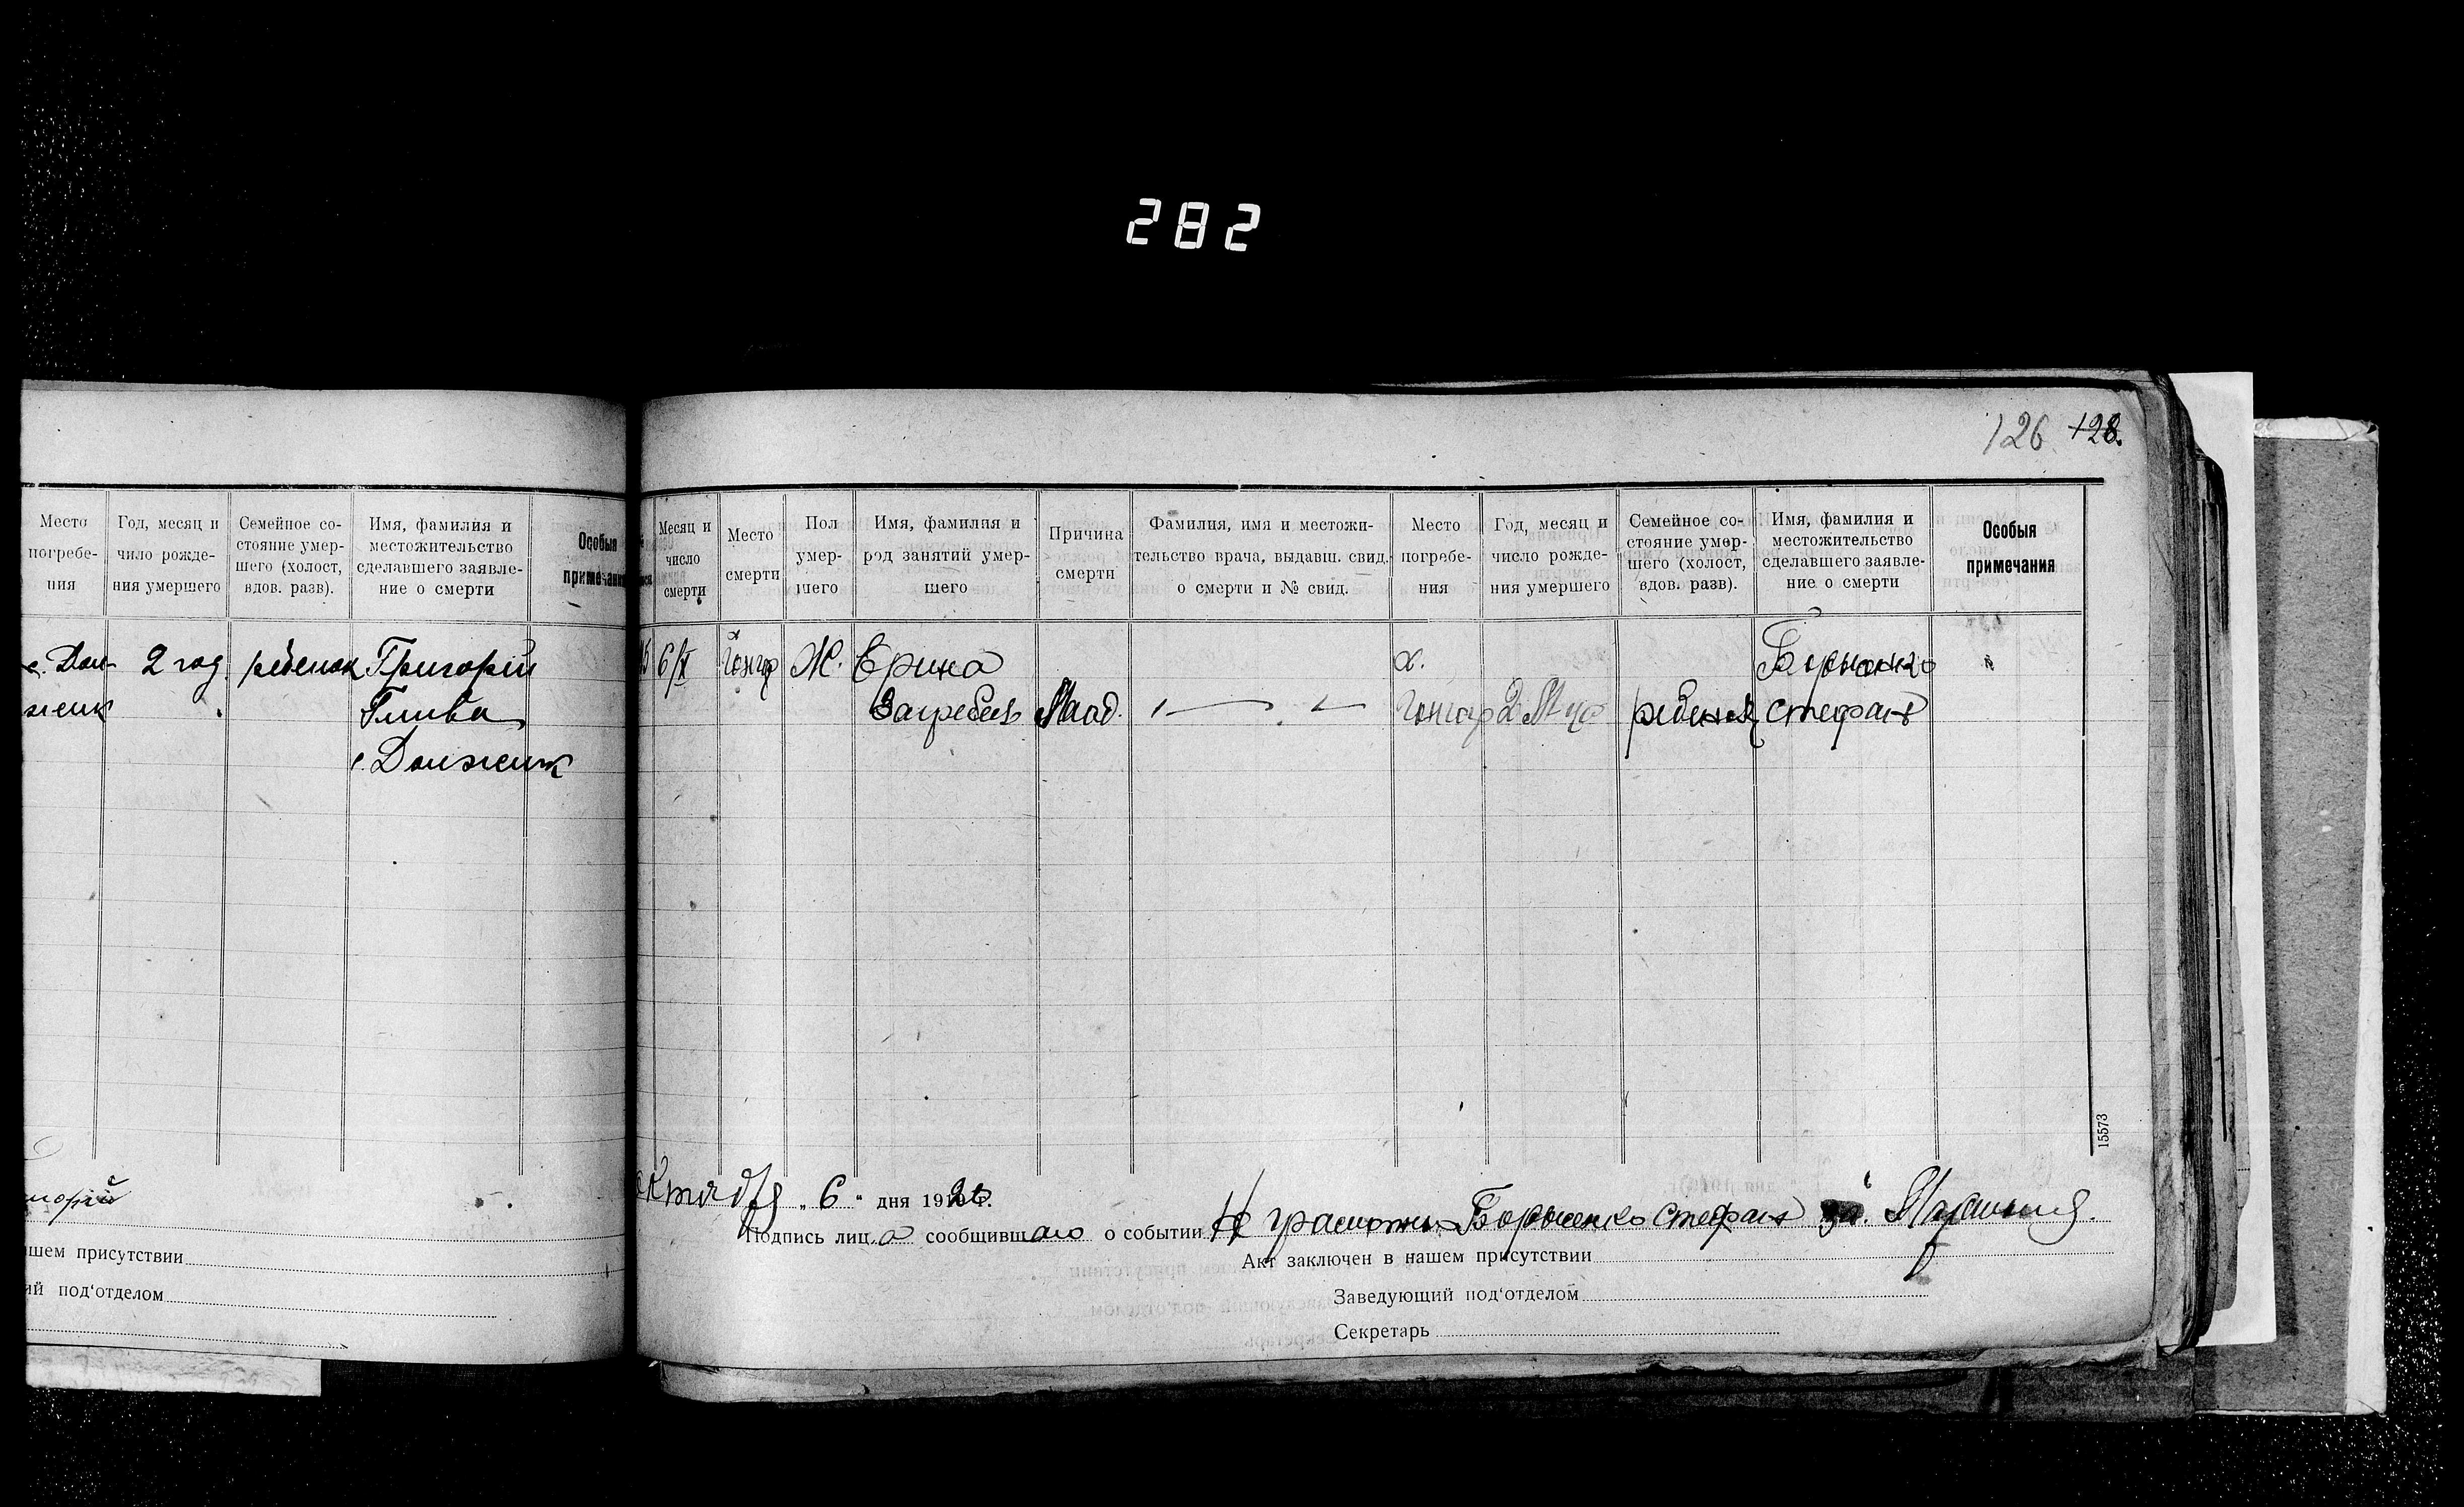 282
126 128.
Место погребе- ния
Год, месяц и чило рожде- ния умершего
Семейное со- стояние умер- шего (холост, вдов. разв).
Имя, фамилия и местожительство сделавшего заявле- ние о смерти
Особыя примечания
с. Дол- 2 год. ребенок Григорій
жик Глива
с. Должик
шем присутствии
ий под‘отделом
Месяц и число смерти
Место смерти
Пол умер- шего
Имя, фамилия и род занятий умер- шего
Причина смерти
Фамилия, имя и местожи- тельство врача, выдавш. свид. о смерти и № свид.
Место погребе- ния
Год, месяц и число рожде- ния умершего
Семейное со- стояние умер- шего (холост, вдов. разв).
Имя, фамилия и местожительство сделавшего заявле- ние о смерти
Особыя примечания
6/X х Ж. Ерина х. Борченко
Млад. 2 ребенок Стефан
15573
октября „ 6 “ дня 1920 г.
Подпись лиц а сообщивш аго о событии Не грамотн Борченко Стефан за
Акт заключен в нашем присутствии
Заведующий под‘отделом
Секретарь